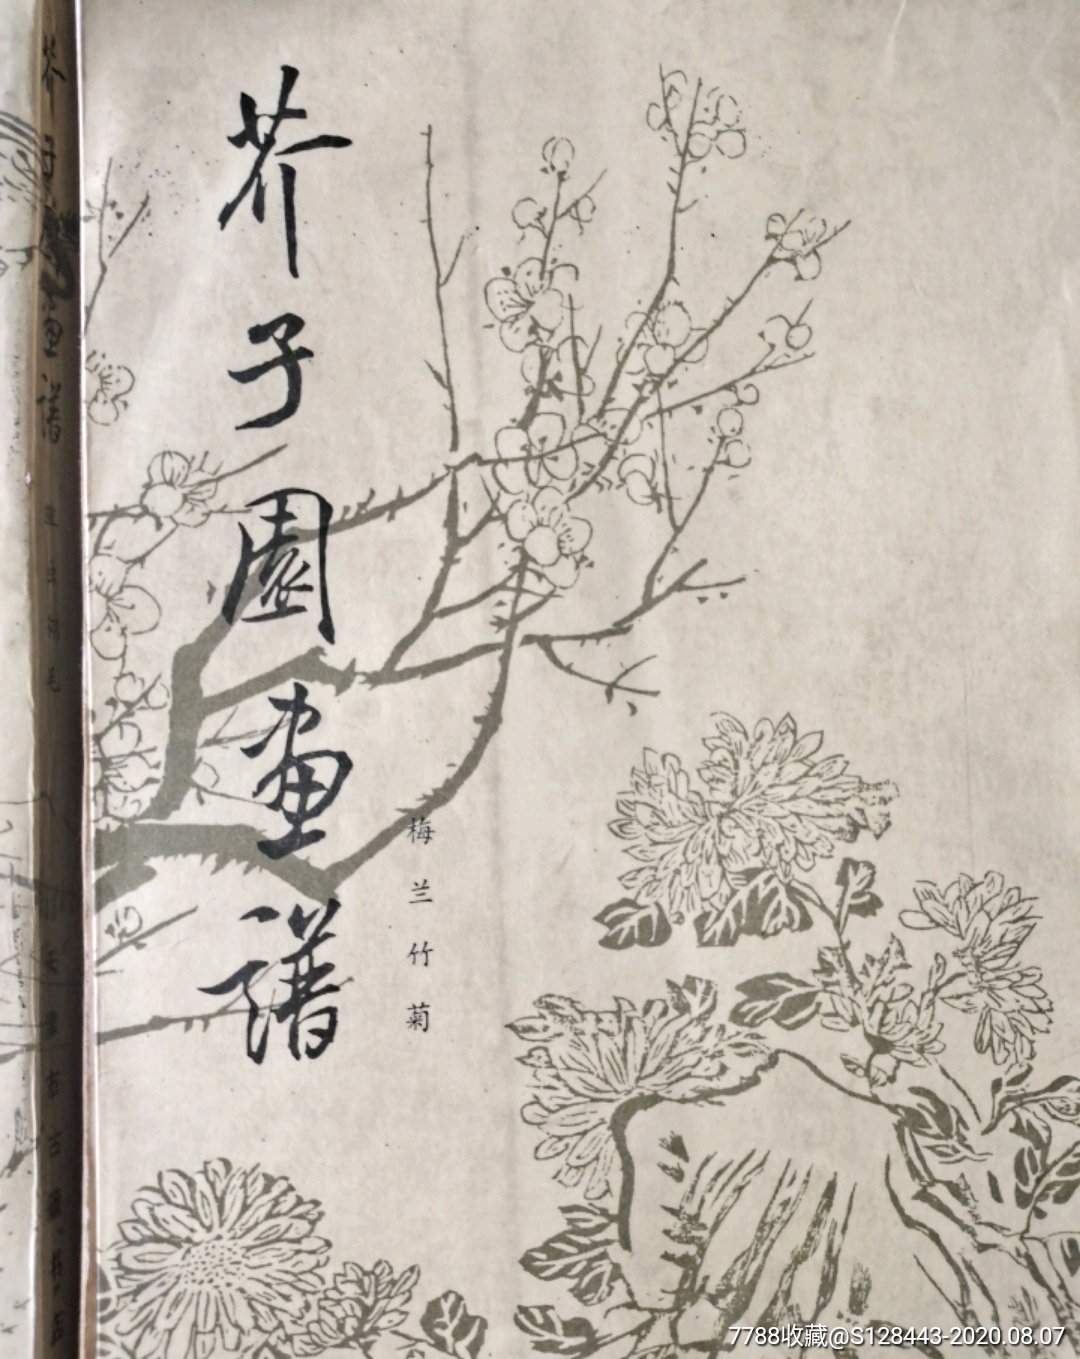 芥子園画谱
梅兰竹菊
7788收藏@S128443-2020.08.07